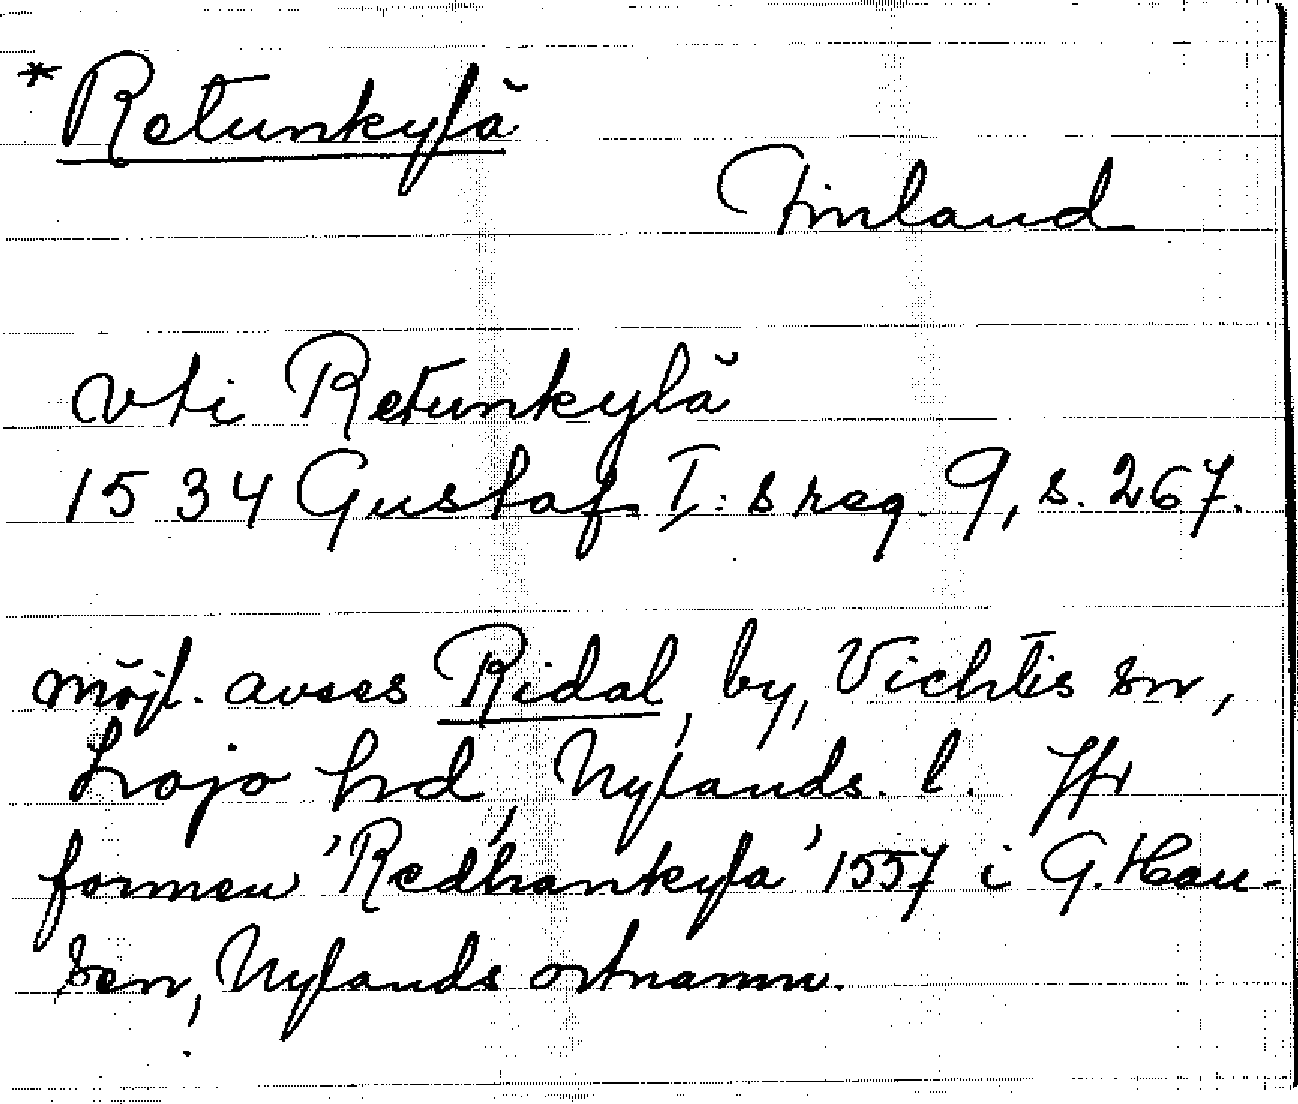 * Retunkylä
Finland
vti Retunkylä
1534 Gustaf I:s reg. 9, s. 267.
möjl. avses Ridal, by, Vichtis sn,
Lojo hd, Nylands. l. Jfr
formen 'Redhankyla' 1557 i G. Hau-
sen, Nylands ortnamn.